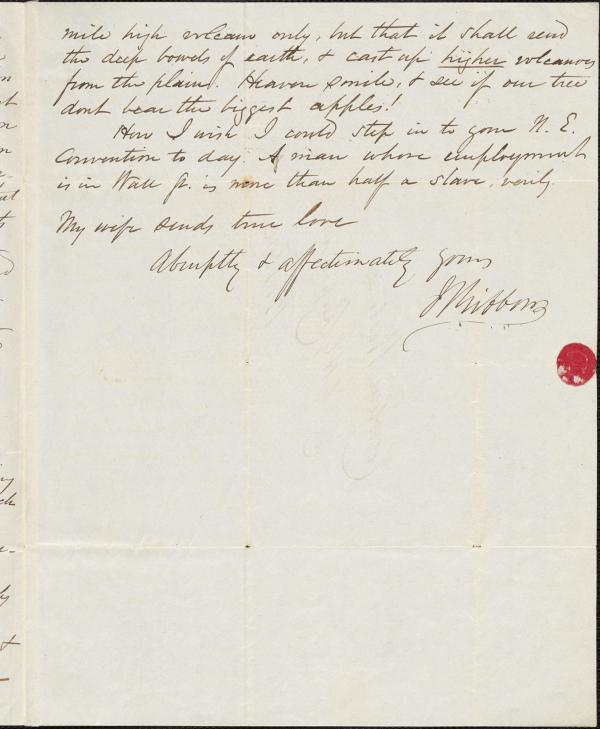 mile high volcano only, but that it shall rend
the deep bowels of earth, & cast up higher volcanoes
from the plains. Heaven smile, & see if our tree
dont bear the biggest apples!
How I wish I could step in to your N. E.
Convention to day. A man whose employment
is in Wall St. is more than half a slave, verily.
My wife sends true love
Abruptly & affectionately yours
J S Gibbons